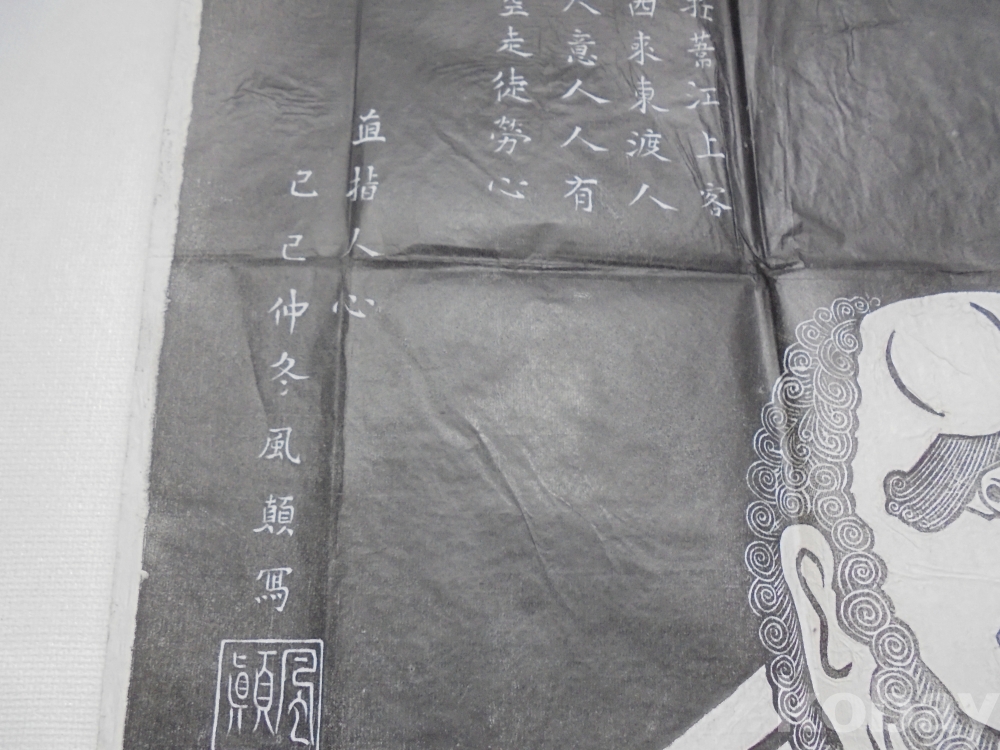 蘆江上客
西來東渡人
人意人人有
空走徒勞心
直指人心
己巳仲冬風顛寫
風顛